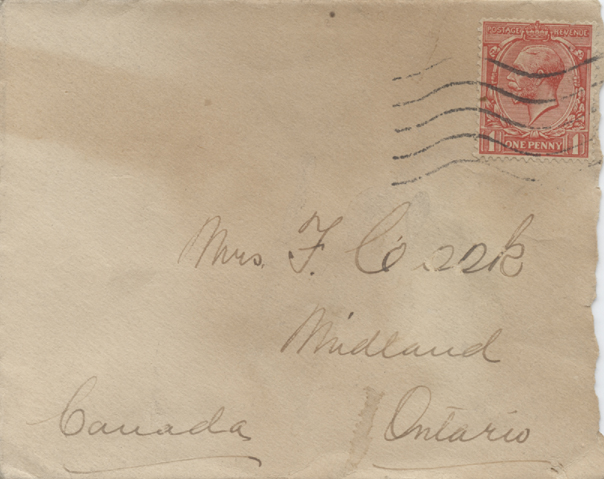 POSTAGE REVENUE
1 ONE PENNY 1
Mrs. F. Cook
Midland
Canada Ontario